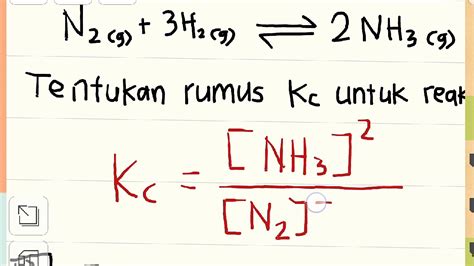 N₂(g) + 3H₂(g) ⇌ 2 NH₃(g)
Tentukan rumus Kc untuk reak
Kc = [NH₃]² / [N₂]